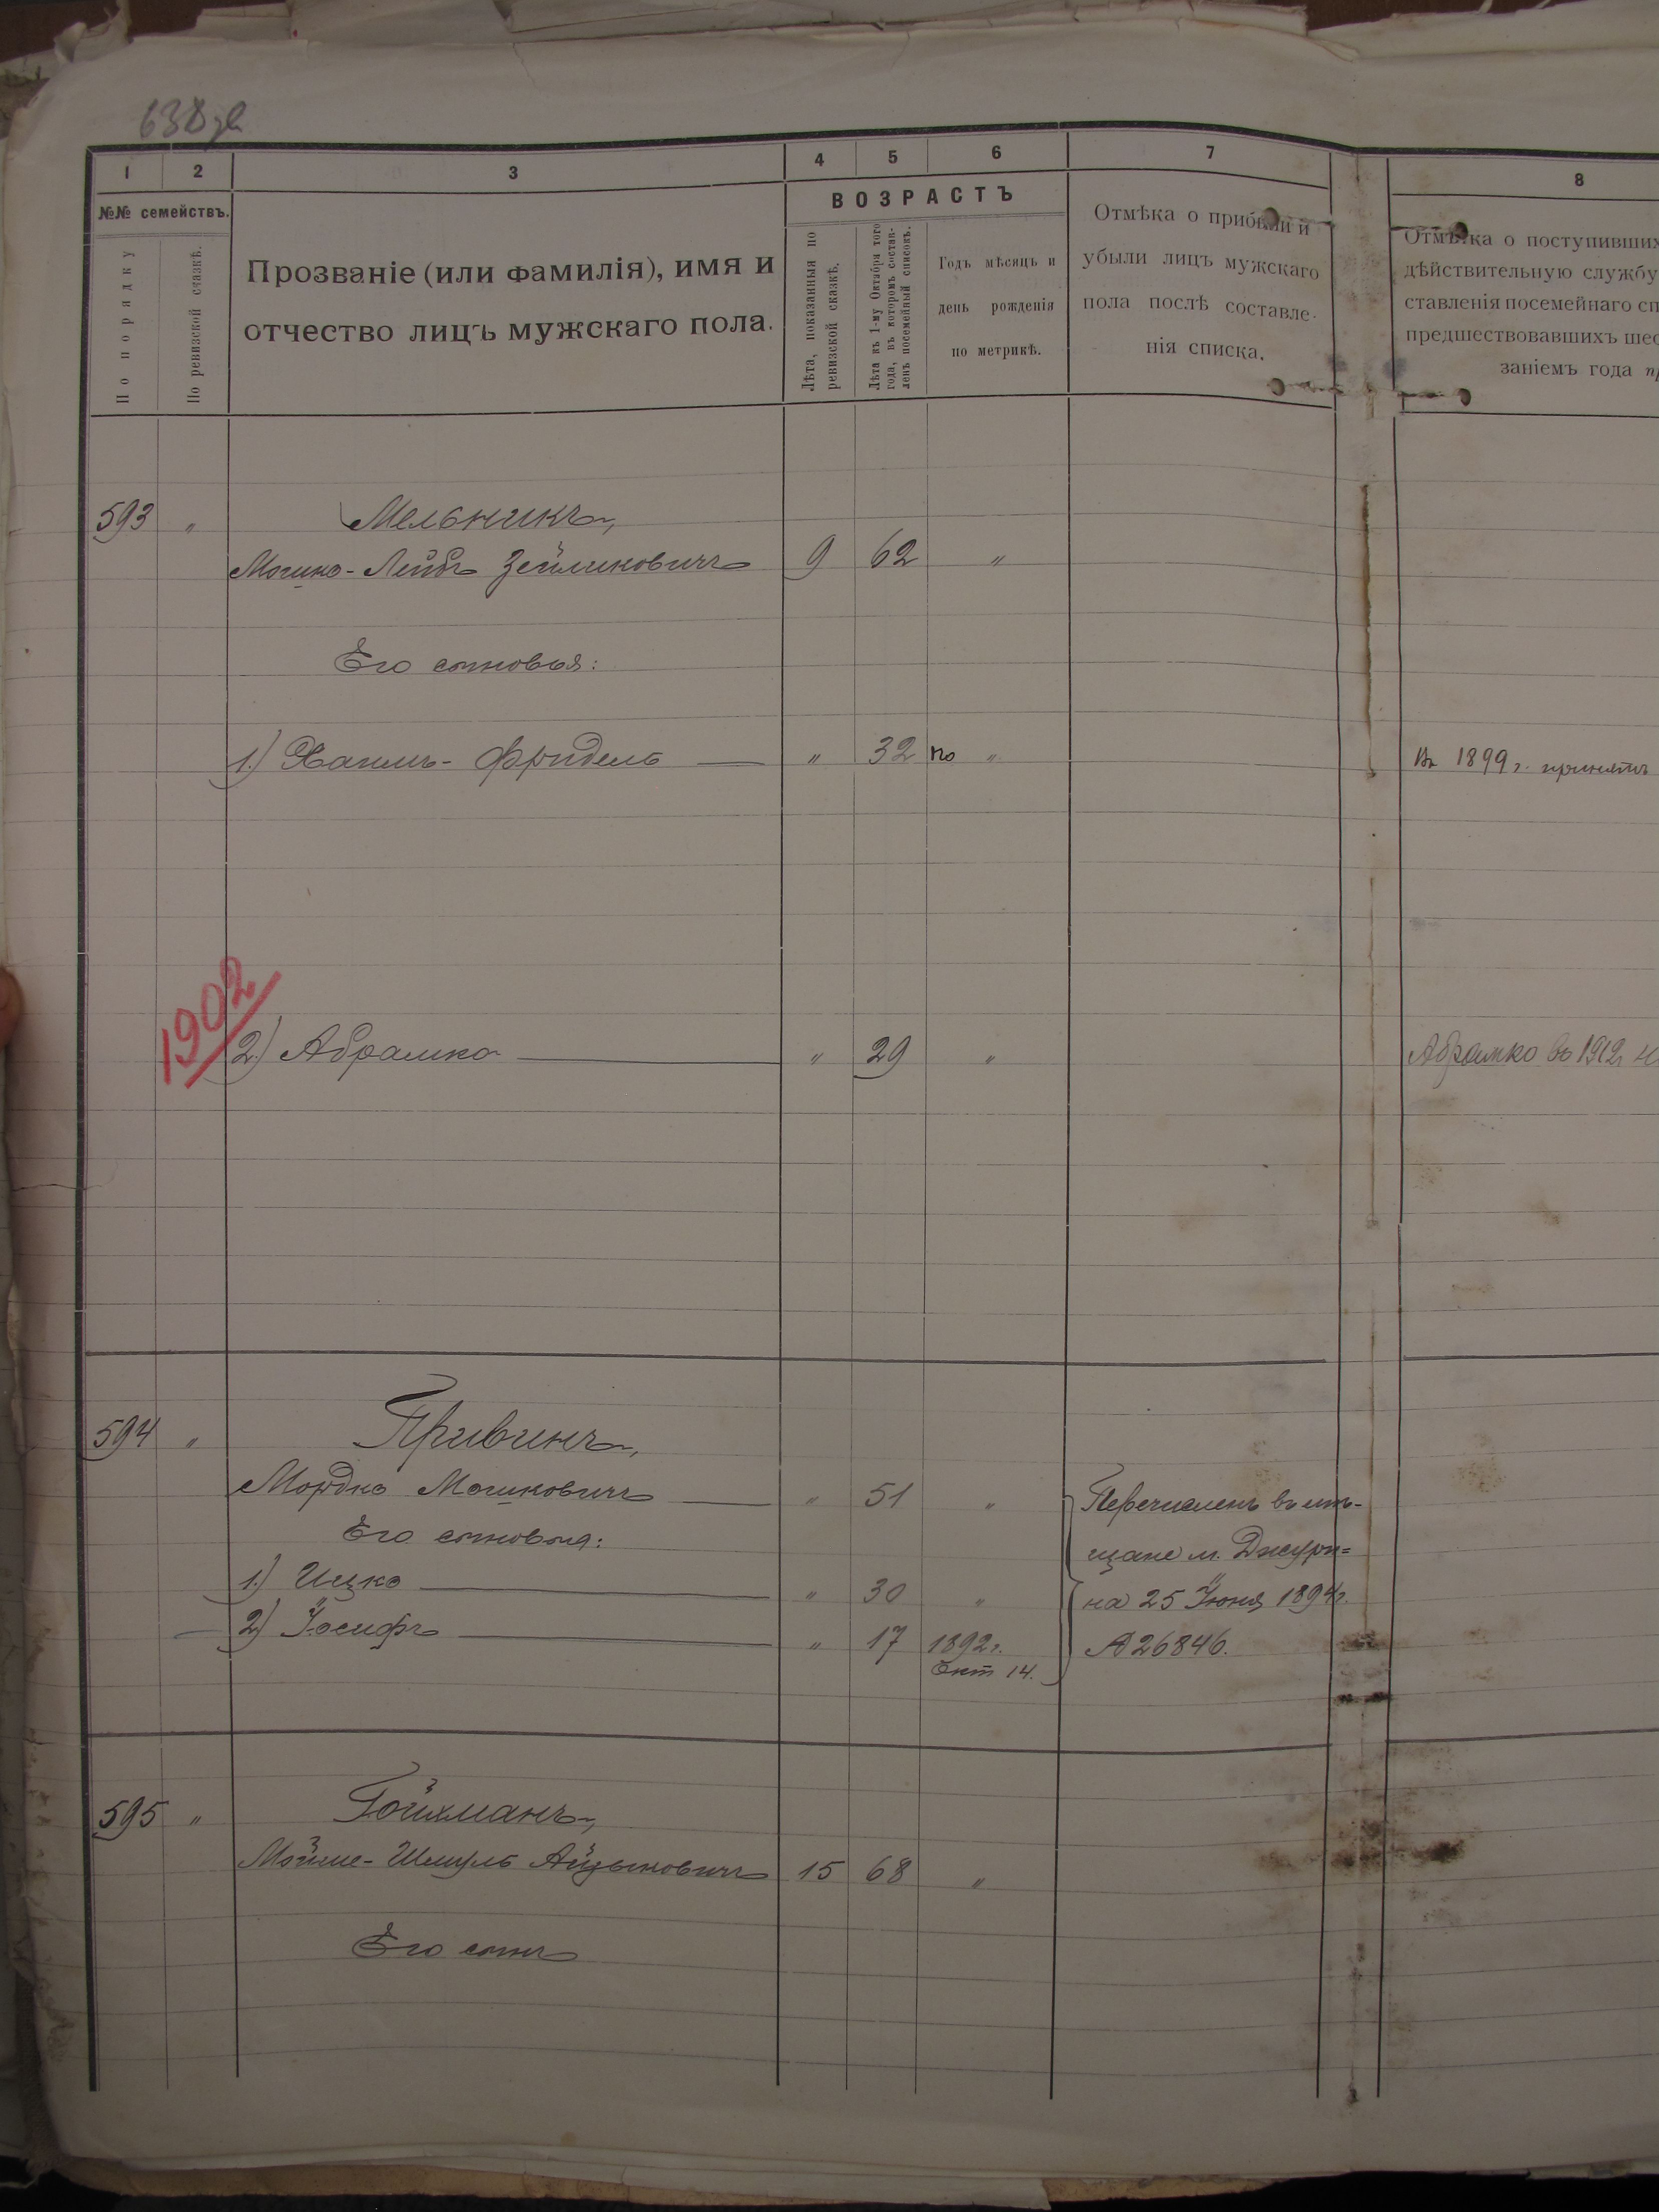 1 2 3 4 5 6 7 8
№№ семействъ.
По порядку
По ревизской сказкѣ.
Прозваніе (или фамилія), имя и
отчество лицъ мужскаго пола.
ВОЗРАСТЪ
Лѣта, показанныя по
ревизской сказкѣ.
Лѣта къ 1-му Октября того
года, въ которомъ состав-
ленъ посемейный списокъ.
Годъ мѣсяцъ и
день рожденія
по метрикѣ.
Отмѣка о прибыли и
убыли лицъ мужскаго
пола послѣ составле-
нія списка.
Отмѣтка о поступивших
дѣйствительную службу
ставленія посемейнаго сп
предшествовавшихъ шес
заніемъ года пр
593 " Мельникъ,
Мошко-Лейбъ Зейликовичъ 9 62 "
Его сыновья:
1.) Хаимъ-Фридель " 32 по " Въ 1899 г. принятъ
1902
2.) Абрамко " 29 " Абрамко въ 1912 г
594 " Привинъ,
Мордко Мошковичъ " 51 " Перечисленъ въ мѣ-
Его сыновья: щане м. Джури=
1.) Ицко " 30 " на 25 Іюня 1894 г.
2) Іосифъ " 17 1892 г. № 26846.
Окт 14.
595 " Гойхманъ,
Мойше-Шмуль Айзыковичъ 15 68 "
Его сынъ